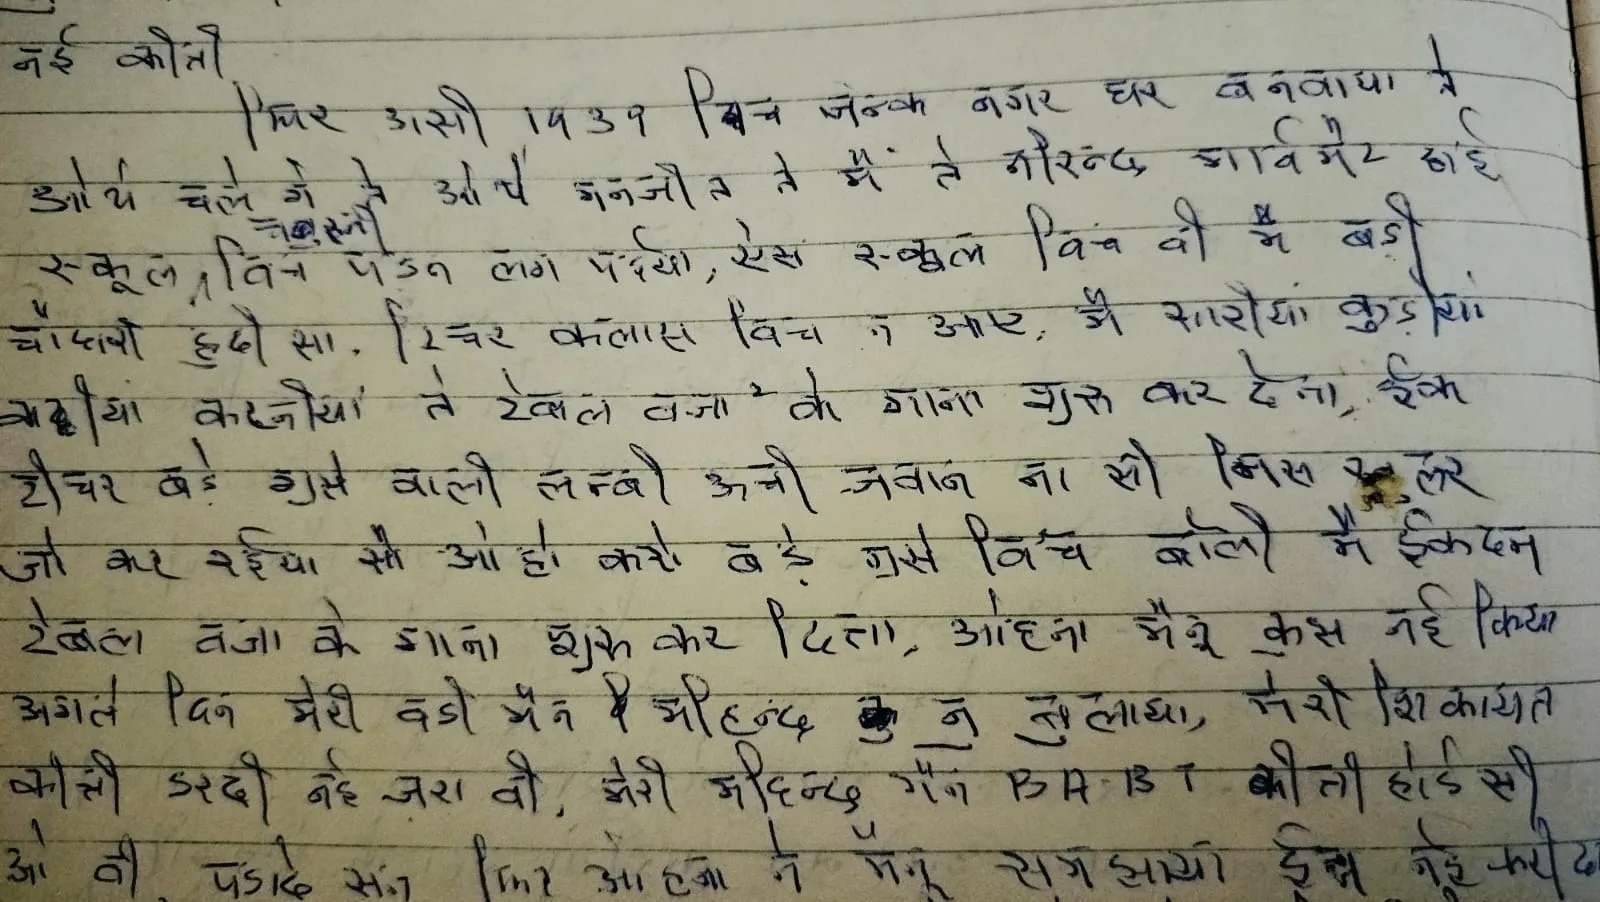 नई कीती
फिर असी 1939 विच जनक नगर घर बनवाया ते
ओथे चले गे ते ओथे मनजीत ते मैं ते नीरन्द्र गार्वमैंट हाई
स्कूल, विच पडन लग पईया, ऐस स्कूल विच वी मैं बड़ी
हुदी सा. टिचर कलास विच न आए, मैं सारीयां कुड़ीयां
करनीयां ते टेबल वजा 2 के गाना शुरू कर देना, ईक
टीचर बड़े गुसे वाली लम्बी ऊची जवान ना सी मिस
जो कर रईया सी ओहो करो बड़े गुसे विच बोली मैं ईकदम
टेबल वजा के गाना शुरू कर दिता, ओहना मैनू कुस नई किया
अगले दिन मेरी वडी भैन मोहिन्द्र नु बुलाया, मेरी शिकायत
कीती डरदी नई जरा वी, मेरी मोहिन्द्र भैन BA-BT कीती होई सी
ओ वी पडादे सन फिर ओहना ने मैनू समझाया ईस नई करीदा